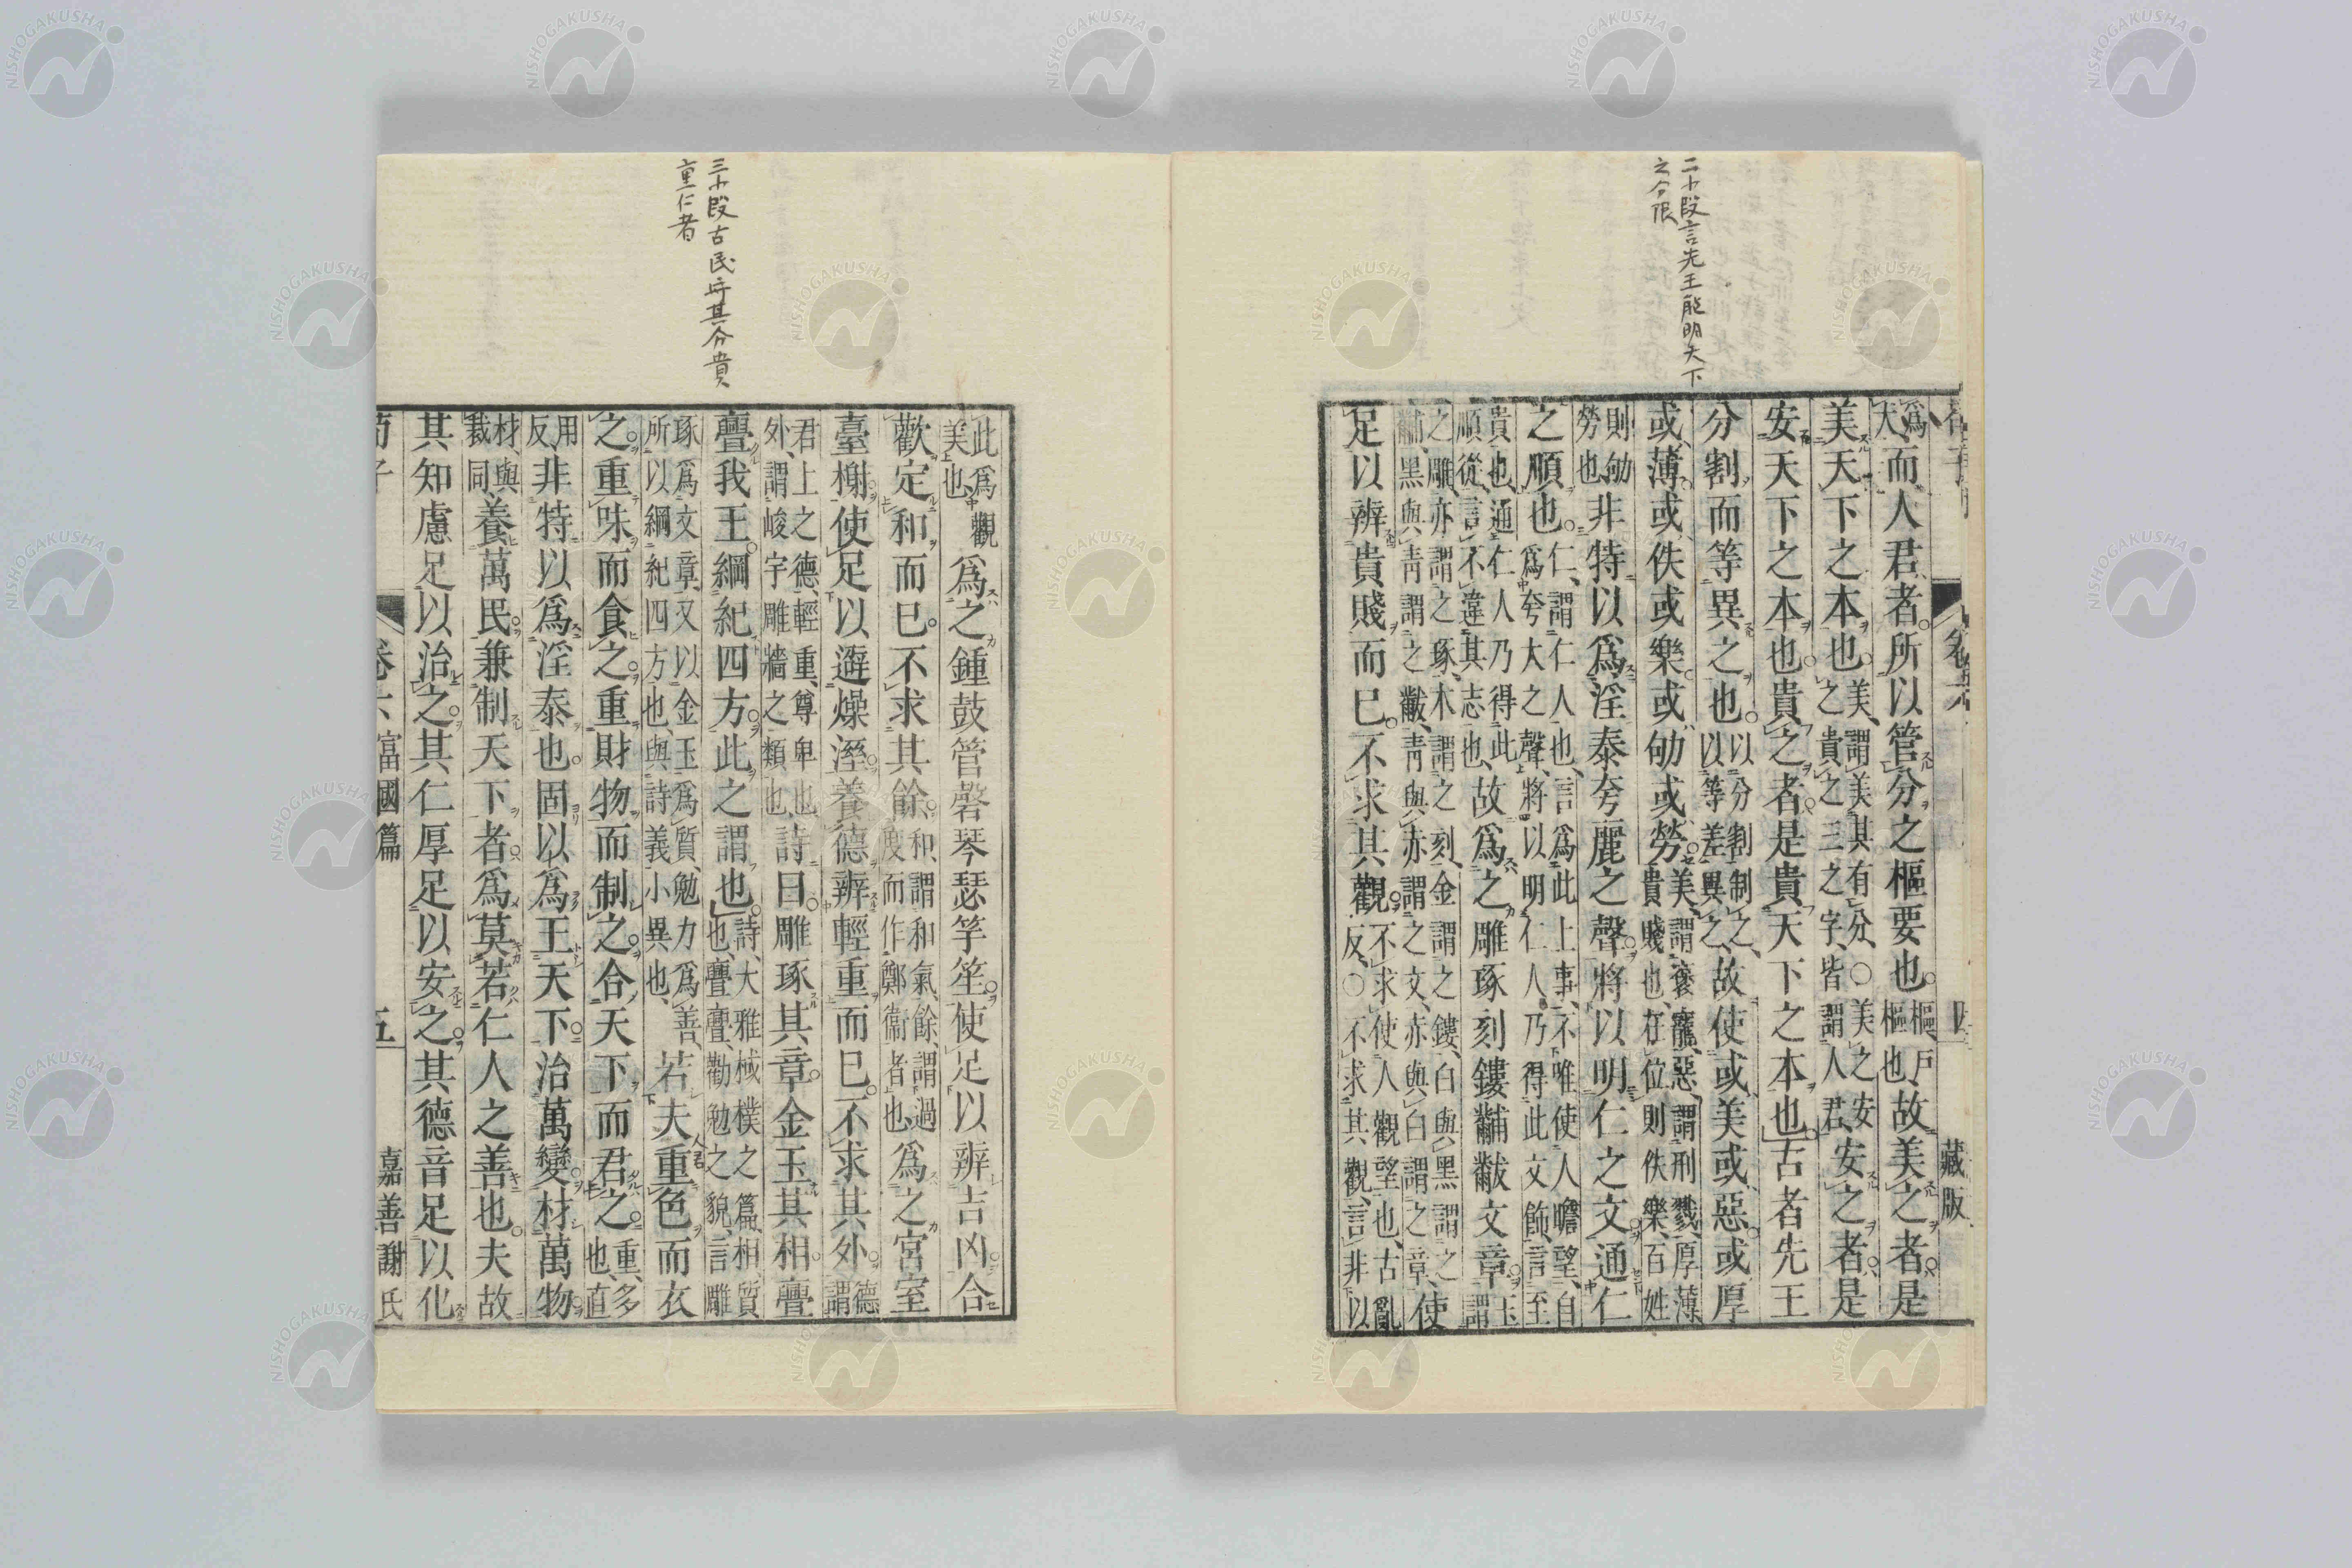 二小段言先王能明天下
之分限
爲
大而人君者所以管分之樞要也樞戶
樞也故美之者是
美天下之本也美謂美其有分〇美之安
之貴之三之字皆謂人君安之者是
安天下之本也貴之者是貴天下之本也古者先王
分割而等異之也以分割制之
以等差異之故使或美或惡或厚
或薄或佚或樂或劬或勞美謂襃寵惡謂刑戮厚薄
貴賤也在位則佚樂百姓
則劬
勞也非特以爲淫泰夸麗之聲將以明仁之文通仁
之順也仁謂仁人也言爲此上事不唯使人瞻望自
爲夸大之聲將以明仁人乃得此文飾言至
貴也通仁人乃得此
順從言不違其志也故爲之雕琢刻鏤黼黻文章玉謂
之雕亦謂之琢木謂之刻金謂之鏤白與黑謂之
黼黑與靑謂之黻靑與赤謂之文赤與白謂之章使
足以辨貴賤而已不求其觀不求使人觀望也古亂
反〇不求其觀言非以
藏版
三小段古民守其分貴
重仁者
此爲觀
美也爲之鍾鼓管磬琴瑟竽笙使足以辨吉凶合
歡定和而已不求其餘和謂和氣餘謂過
度而作鄭衞者也爲之宮室
臺榭使足以避燥溼養德辨輕重而已不求其外德謂
君上之德輕重尊卑也
外謂峻宇雕牆之類也詩曰雕琢其章金玉其相亹
亹我王綱紀四方此之謂也詩大雅棫樸之篇相質
也亹亹勸勉之貌言雕
琢爲文章又以金玉爲質勉力爲善
所以綱紀四方也與詩義小異也若夫重色而衣
之重味而食之重財物而制之合天下而君之重多
也直
用
反非特以爲淫泰也固以爲王天下治萬變材萬物
材與
裁同養萬民兼制天下者爲莫若仁人之善也夫故
其知慮足以治之其仁厚足以安之其德音足以化
荀子
卷六富國篇
五
嘉善謝氏
NISHOGAKUSHA